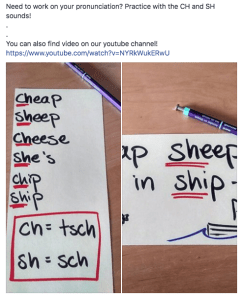 Need to work on your pronunciation? Practice with the CH and SH
sounds!
.
.
You can also find video on our youtube channel!
https://www.youtube.com/watch?v=NYRkWukERwU
cheap
sheep
cheese
she's
chip
ship
ch = tsch
sh = sch
ap sheep
in ship -